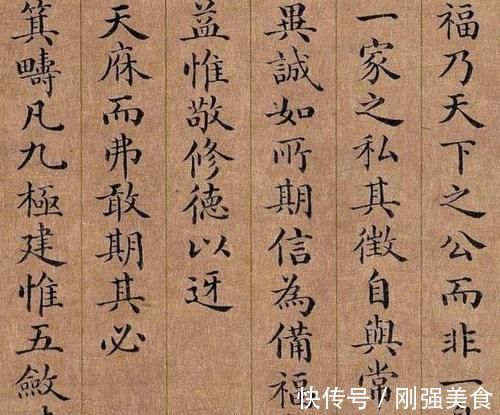 福乃天下之公而非一
一家之私其徵自與常
異誠如所期信為備福
益惟敬修德以迓
天庥而弗敢期其必
箕疇凡九極建惟五斂
快传号/刚强美食